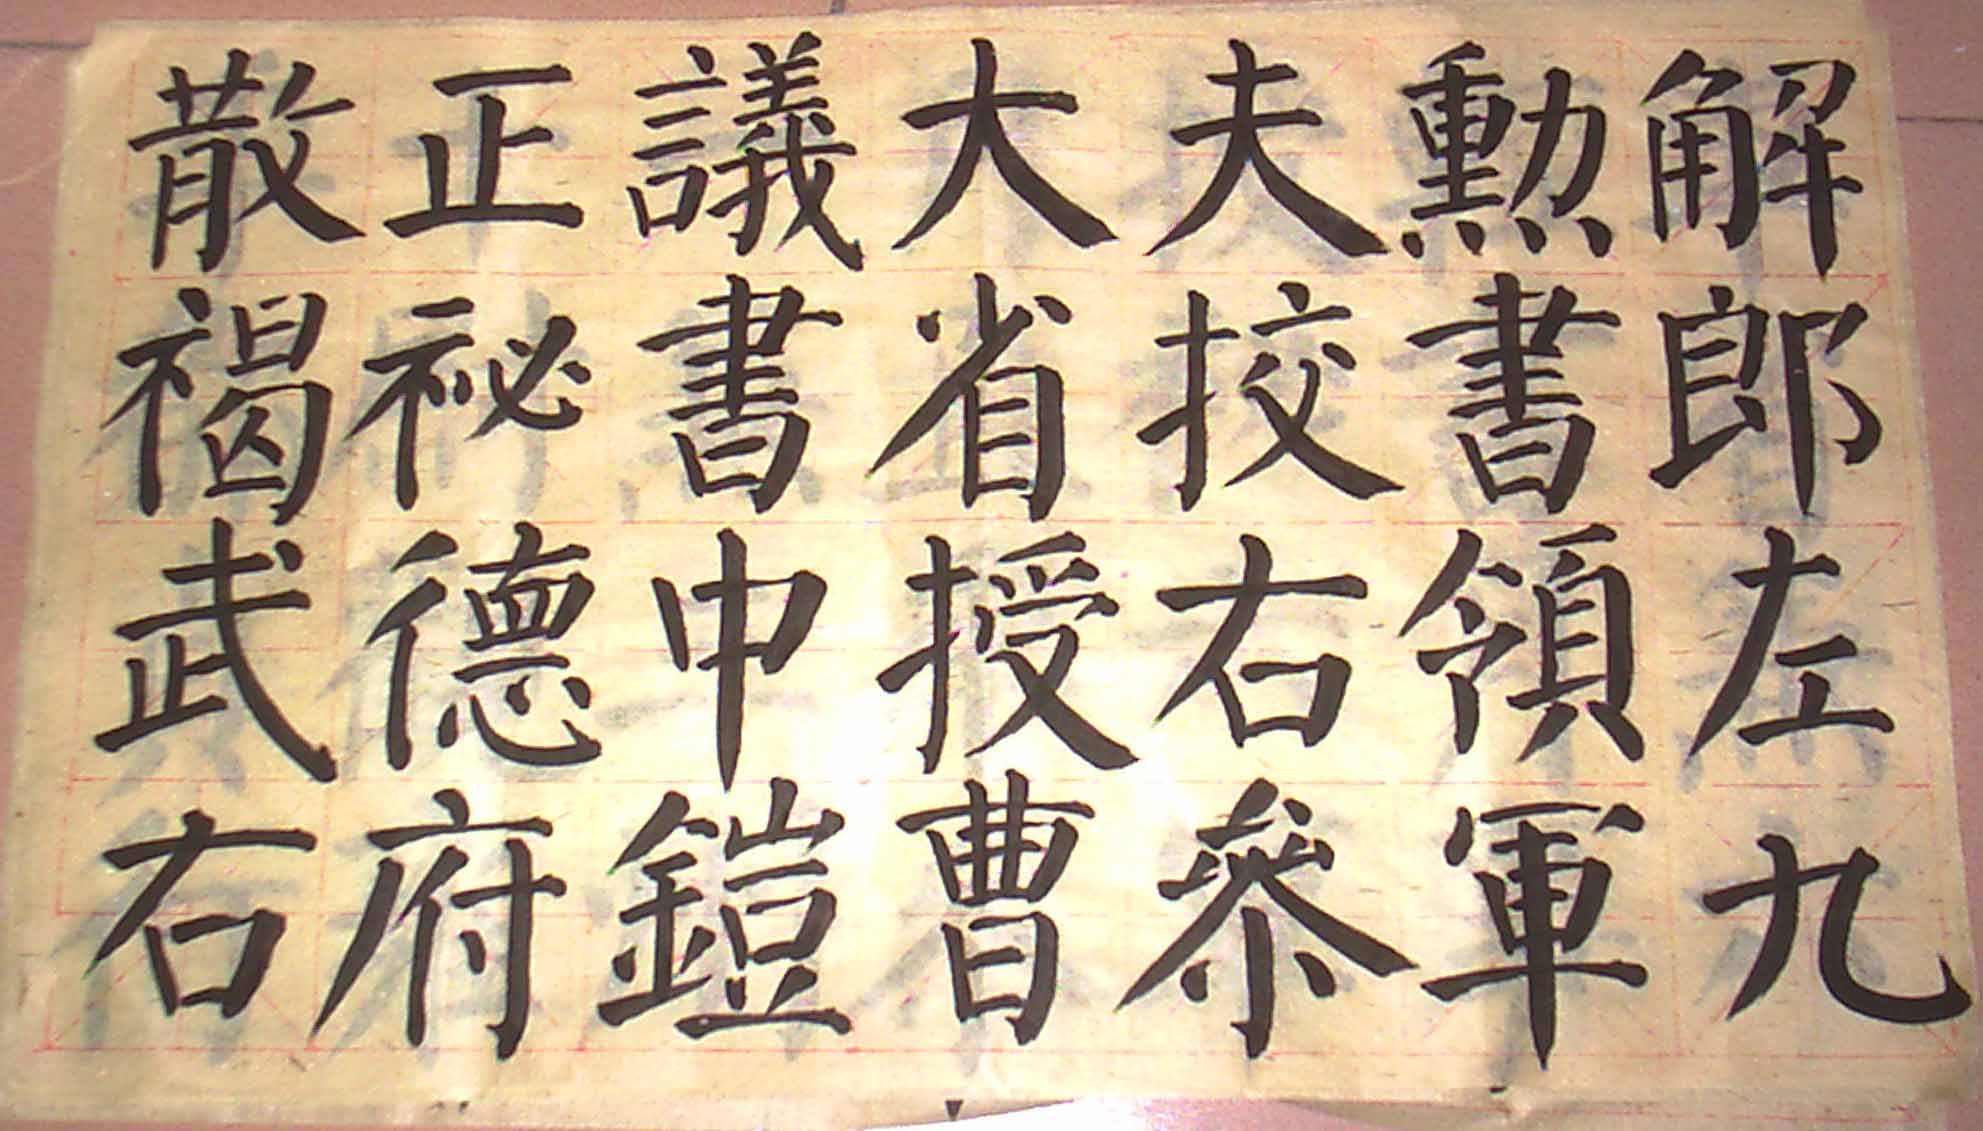 散正議大夫勳解
褐祕書省挍書郎
武德中授右領左
右府鎧曹參軍九